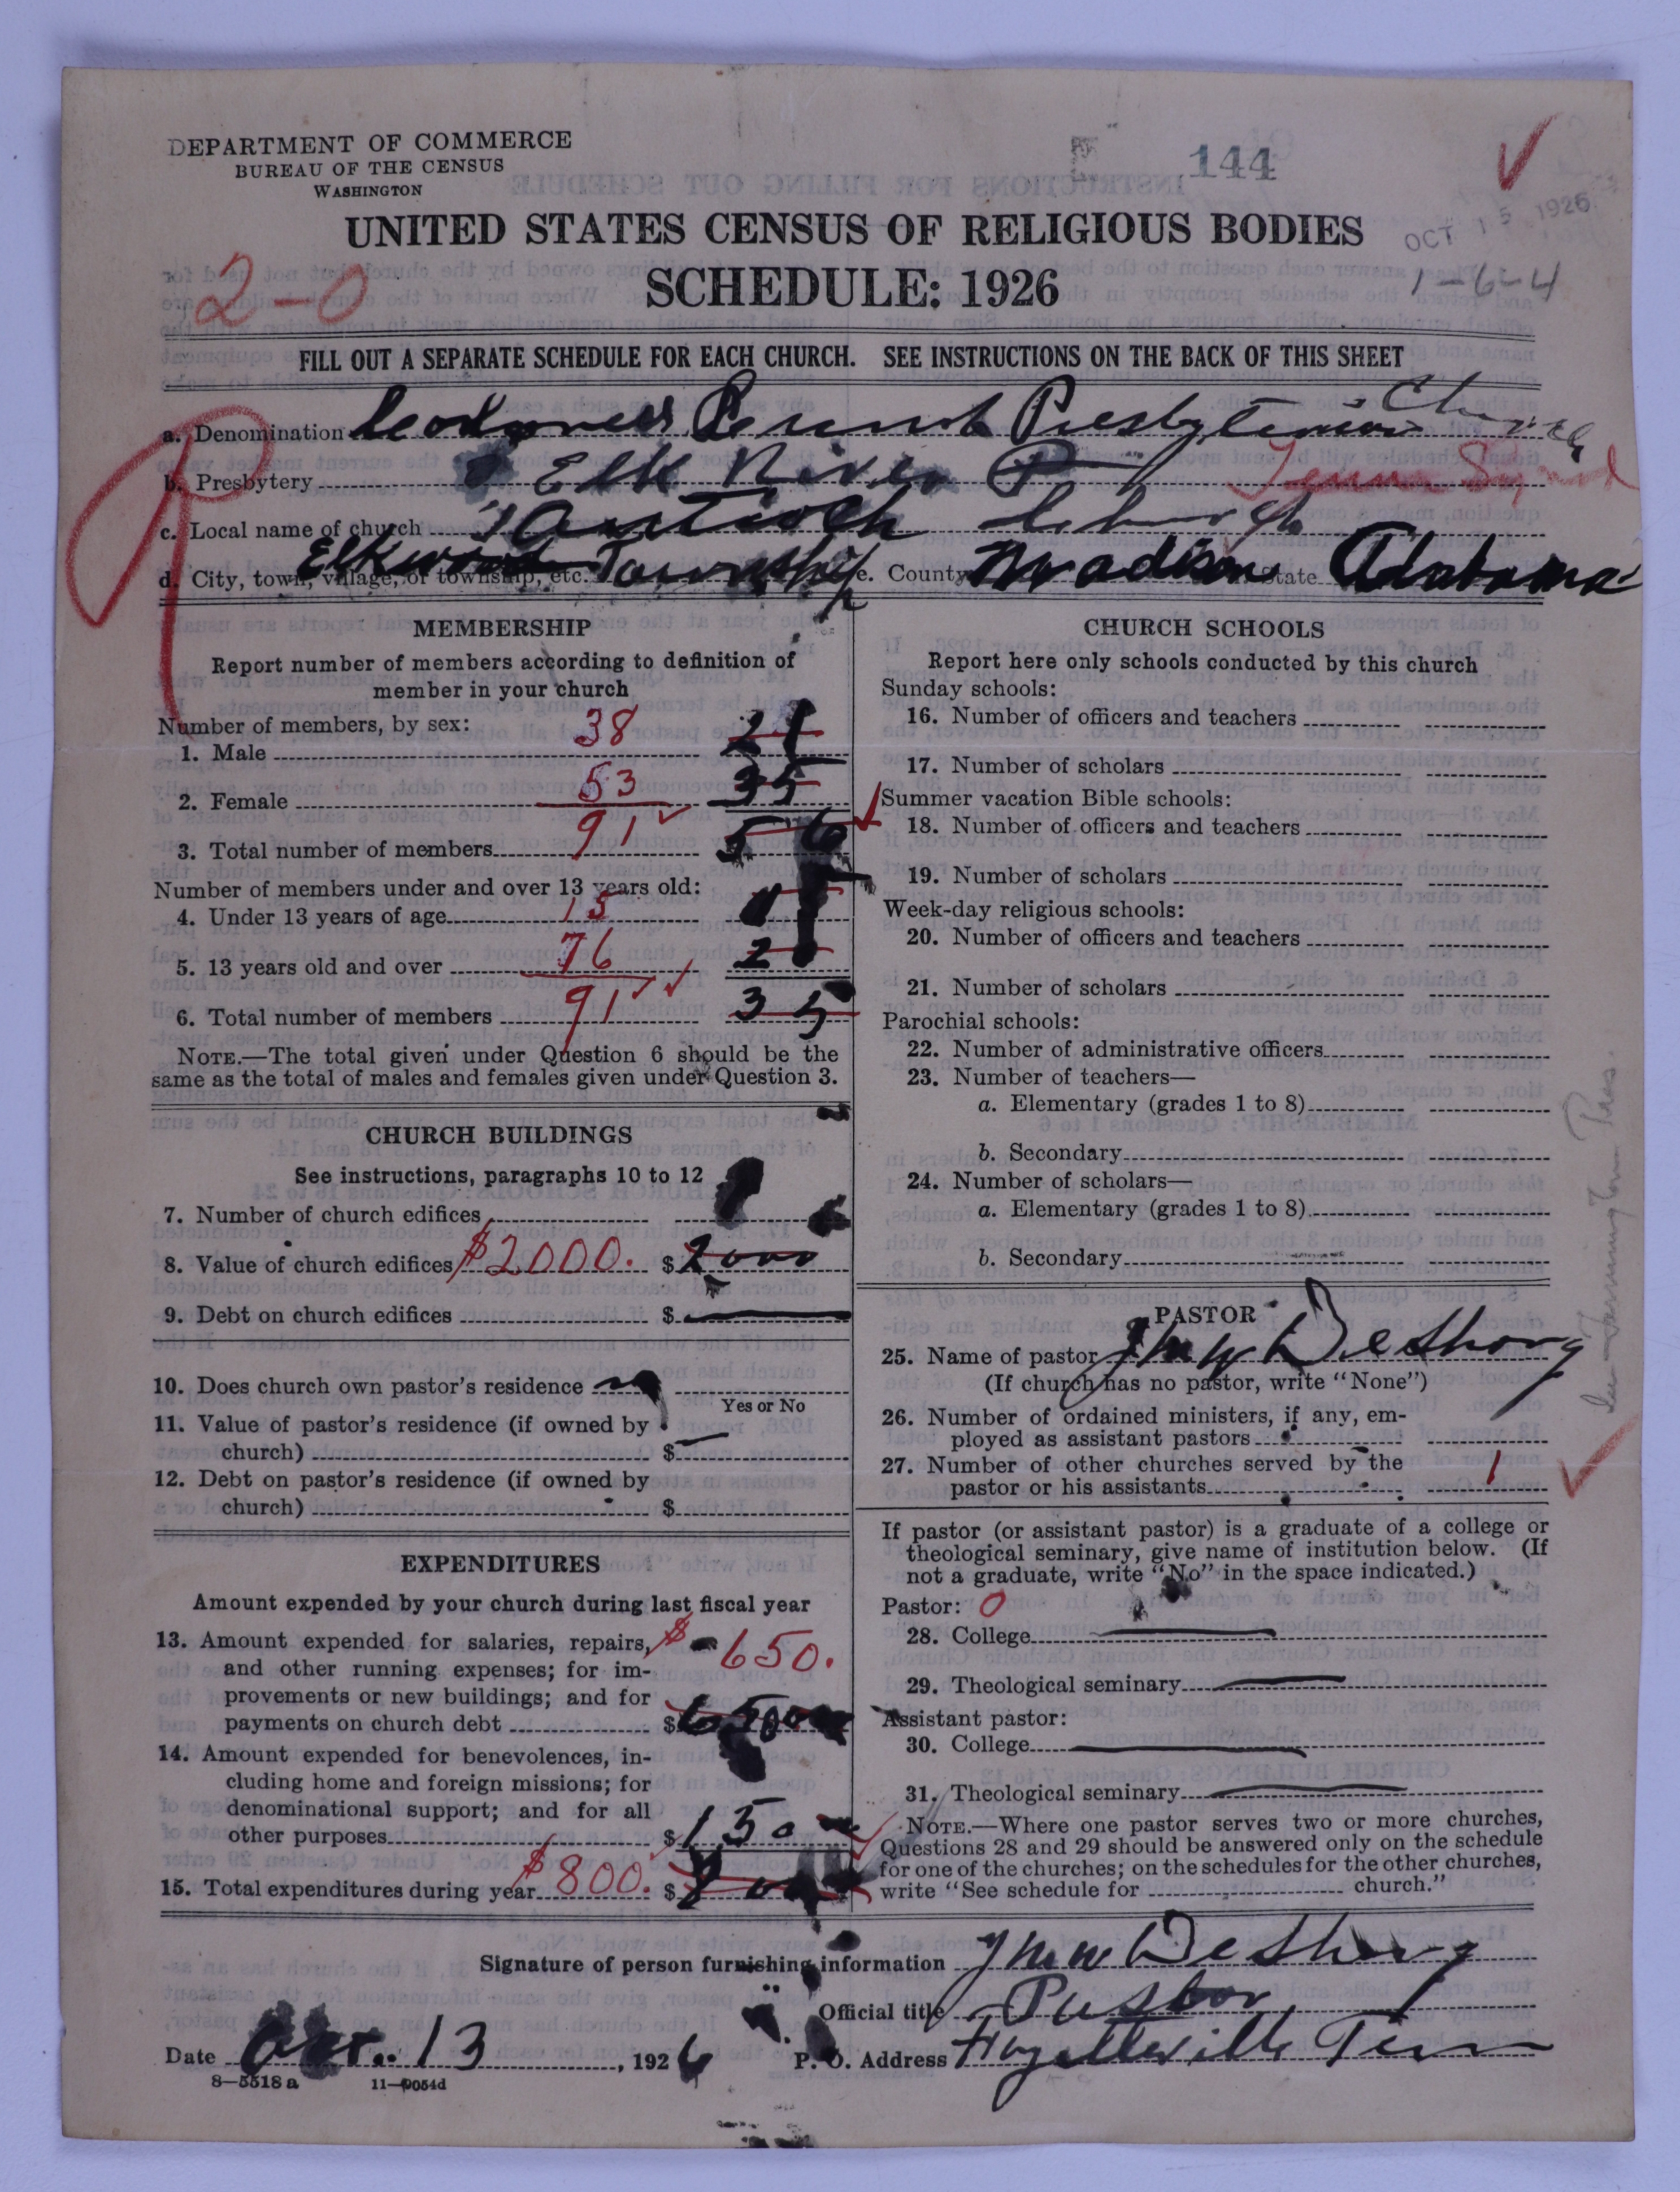 DEPARTMENT OF COMMERCE
BUREAU OF THE CENSUS
WASHINGTON
144
OCT 15 1926
1-6-4
UNITED STATES CENSUS OF RELIGIOUS BODIES
SCHEDULE: 1926
2-0
FILL OUT A SEPARATE SCHEDULE FOR EACH CHURCH. SEE INSTRUCTIONS ON THE BACK OF THIS SHEET
a. Denomination Presbyterian Church
b. Presbytery Elk River P Tenn Synod
c. Local name of church Antioch Church
d. City, town, village, or township, etc. Elkwood Township e. County Madison State Alabama
MEMBERSHIP
Report number of members according to definition of
member in your church
Number of members, by sex:
1. Male 38 21
2. Female 53 35
3. Total number of members 91 56
Number of members under and over 13 years old:
4. Under 13 years of age 15
5. 13 years old and over 76
6. Total number of members 91 35
NOTE.—The total given under Question 6 should be the
same as the total of males and females given under Question 3.
CHURCH BUILDINGS
See instructions, paragraphs 10 to 12
7. Number of church edifices
8. Value of church edifices $2000. $2000
9. Debt on church edifices $
10. Does church own pastor's residence no
Yes or No
11. Value of pastor's residence (if owned by
church) $
12. Debt on pastor's residence (if owned by
church) $
EXPENDITURES
Amount expended by your church during last fiscal year
13. Amount expended for salaries, repairs, $650.
and other running expenses; for im-
provements or new buildings; and for
payments on church debt $
14. Amount expended for benevolences, in-
cluding home and foreign missions; for
denominational support; and for all
other purposes $150
15. Total expenditures during year $800. $
CHURCH SCHOOLS
Report here only schools conducted by this church
Sunday schools:
16. Number of officers and teachers
17. Number of scholars
Summer vacation Bible schools:
18. Number of officers and teachers
19. Number of scholars
Week-day religious schools:
20. Number of officers and teachers
21. Number of scholars
Parochial schools:
22. Number of administrative officers
23. Number of teachers—
a. Elementary (grades 1 to 8)
b. Secondary
24. Number of scholars—
a. Elementary (grades 1 to 8)
b. Secondary
PASTOR
25. Name of pastor
(If church has no pastor, write "None")
26. Number of ordained ministers, if any, em-
ployed as assistant pastors
27. Number of other churches served by the
pastor or his assistants 1
If pastor (or assistant pastor) is a graduate of a college or
theological seminary, give name of institution below. (If
not a graduate, write "No" in the space indicated.)
Pastor: 0
28. College
29. Theological seminary
Assistant pastor:
30. College
31. Theological seminary
NOTE.—Where one pastor serves two or more churches,
Questions 28 and 29 should be answered only on the schedule
for one of the churches; on the schedules for the other churches,
write "See schedule for church."
Signature of person furnishing information
Official title Pastor
Date Oct. 13, 1926 P. O. Address Tenn
8—5518 a 11—9054d